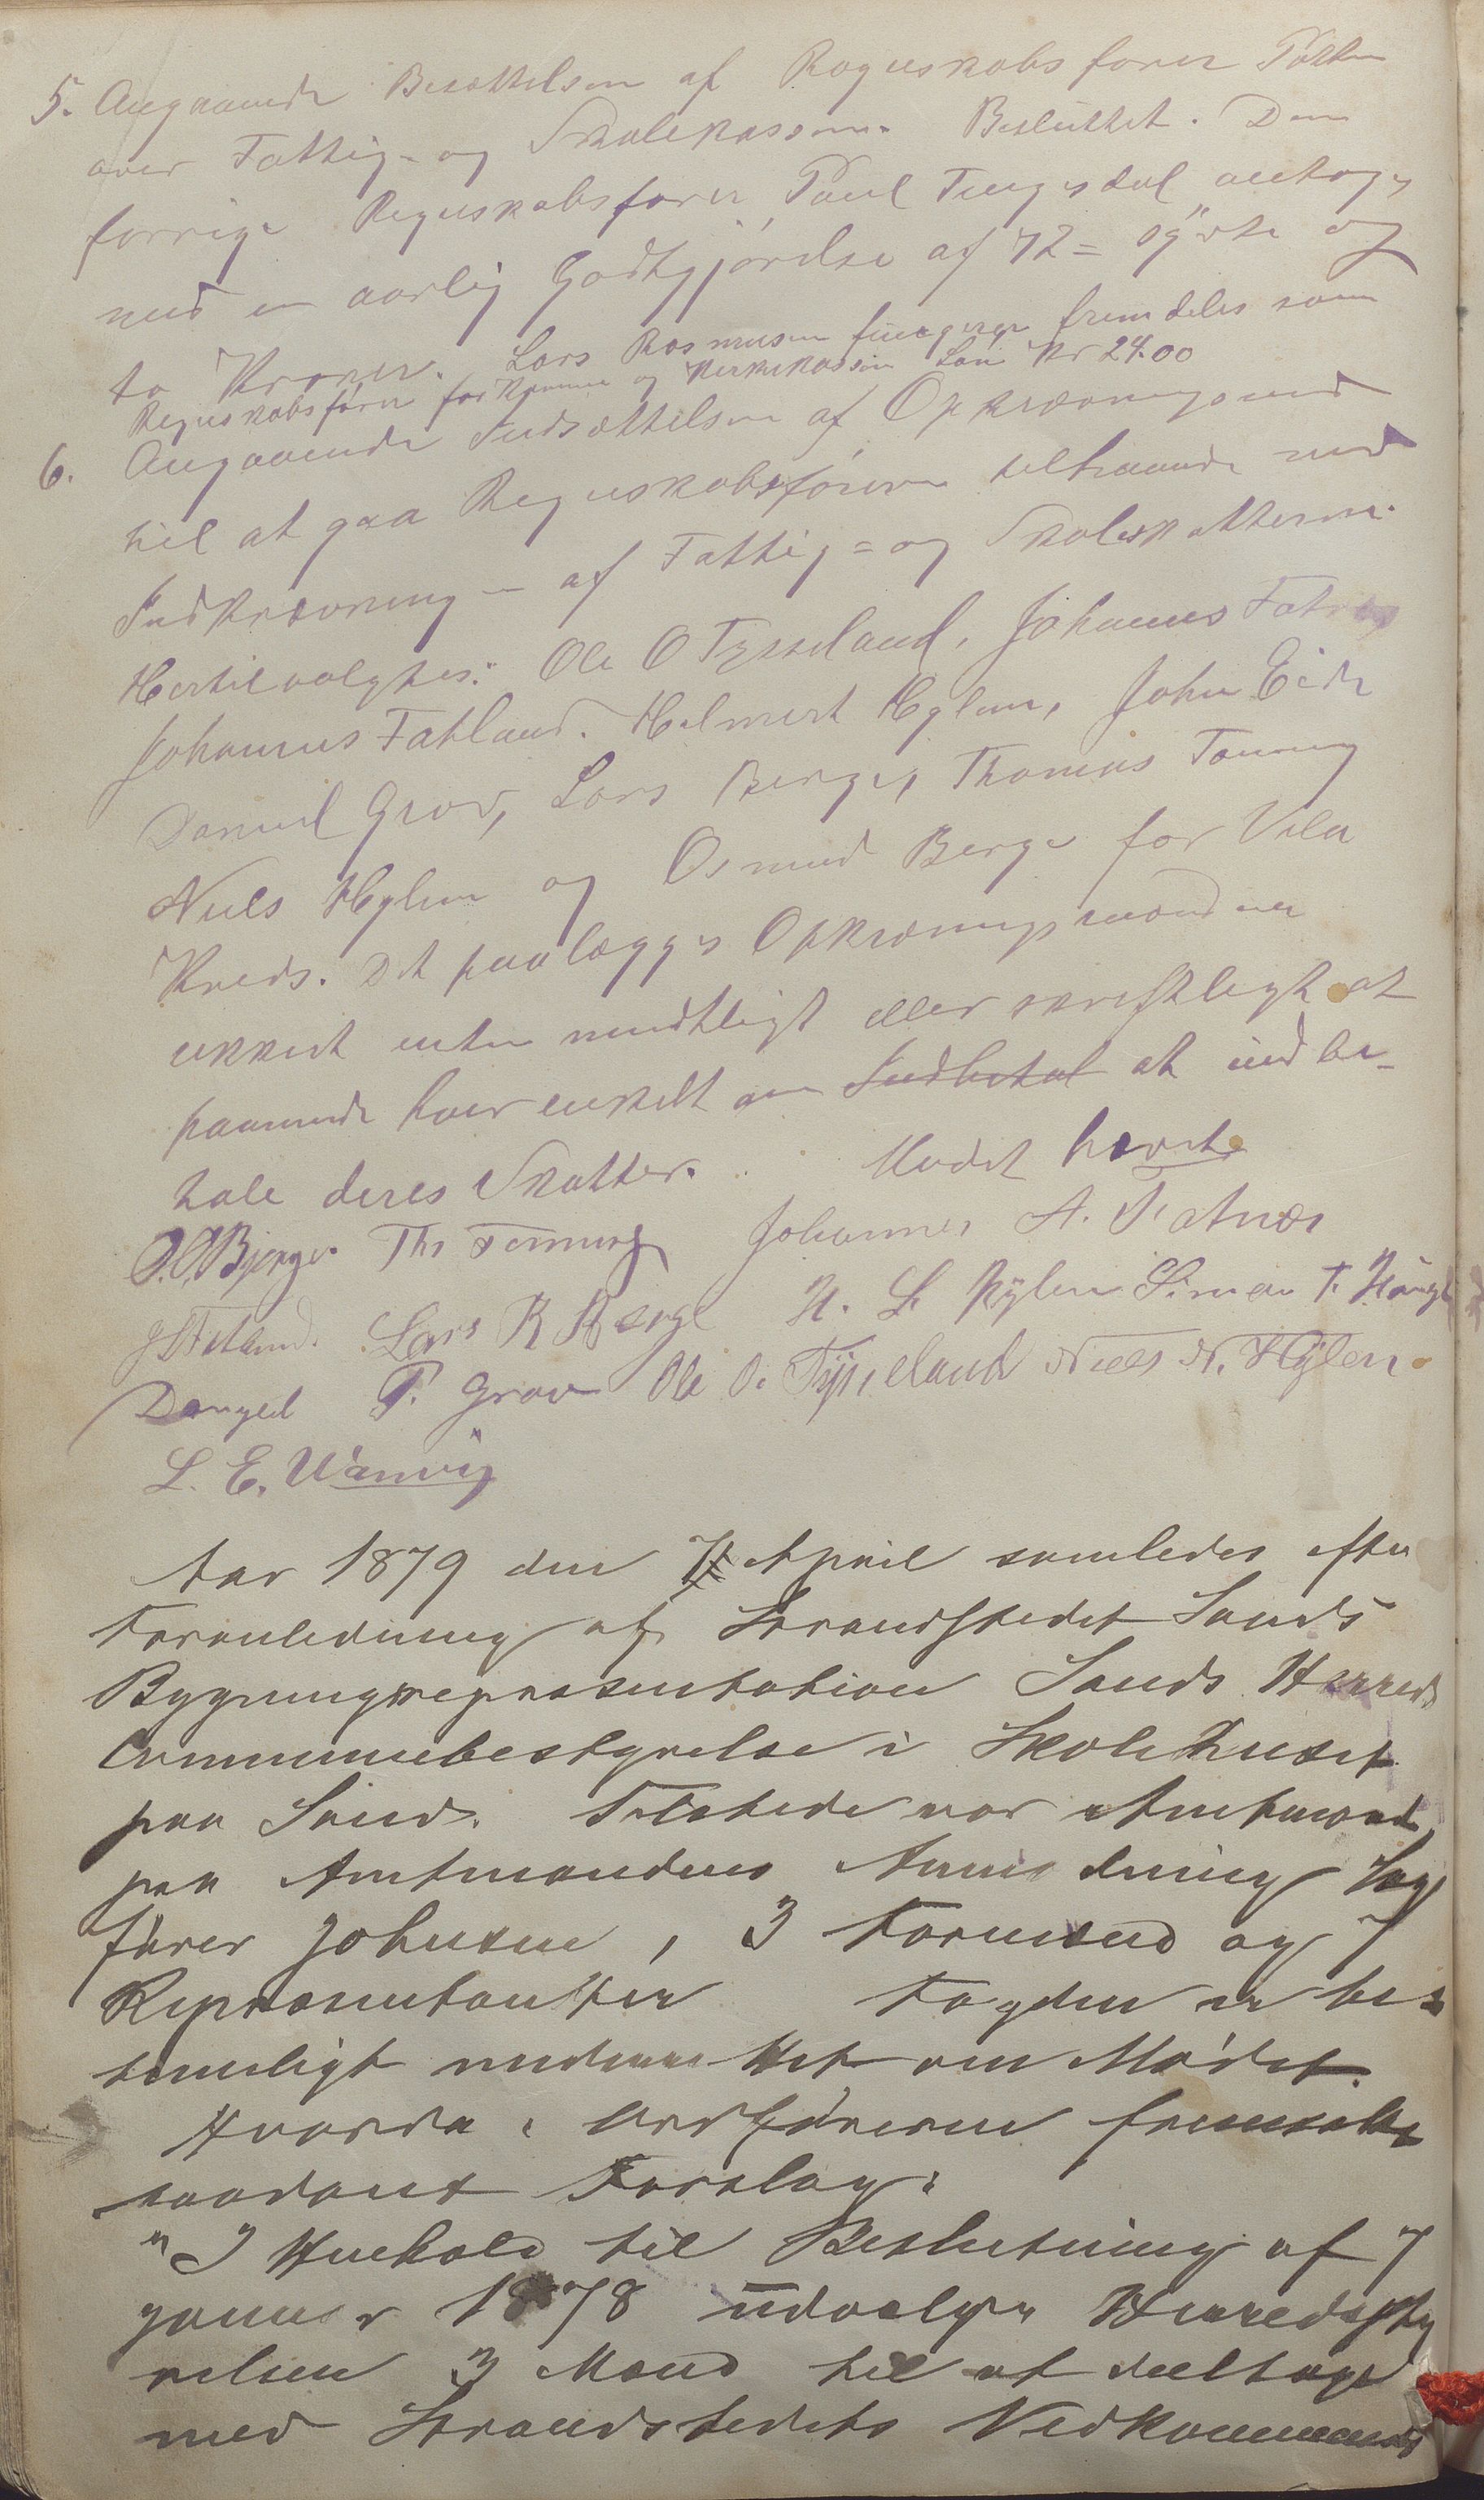 5. Angaaende Besættelsen af Regnskabsfører Posten
over Fattig- og Skolekassen. Besluttet. Den
forrige Regnskabsfører Poul Tengesdal antoges
med en aarlig Godtgjörelse af 72 = og
to Kroner. Lars Rasmusen fungerer fremdeles som
Regnskabsfører for Komune og Kirkekassen Løn Kr 24.00
6. Angaaende Indsættelsen af Opkrævningsmænd
til at gaa Regnskabsføreren tilhaande med
Indkrævning - af Fattig= og Skoleskatterne.
Hertil valgtes: Ole O Tysseland, Johannes Fatnes
Johannes Fatland. Helmert Hylen, John Eide
Daniel Grov, Lars Berge, Thomas Tenning
Niels Hylen og Osmund Berge for Vela
Kreds. Det paalægges Opkrævningsmændene
enten mundtligt eller skriftligt at
paaminde hver enkelt om Indbetal at indbe-
tale deres Skatter. Modet hævet
O. O. Bjerge. Ths Tenning Johannes A. Fatnes
J Fatland. Lars R Berge H. L Hylen Simon T.
Danyel T. Grov Ole O. Tysseland Niels N. Hylen
L. E. Wanvig
Aar 1879 den 7 April samledes efter
Foranledning af Strandstedet Sands
Bygningsrepræsentation Sands Herreds
Communebestyrelse i Skolehuset
paa Sand. Tilstede var Amtmand
paa Amtmandens Anmodning Sag
fører Johnsen, 3 Formænd og 7
Repræsentanter Fogden er be-
timeligt underrettet om Mødet.
Hvorda Ordføreren fremsatte
saadant Forslag:
"I Henhold til Beslutning af 7
Januar 1878 udvælger Herredssty
relsen 3 Mænd til at deeltage
med Strandstedets Vedkommende